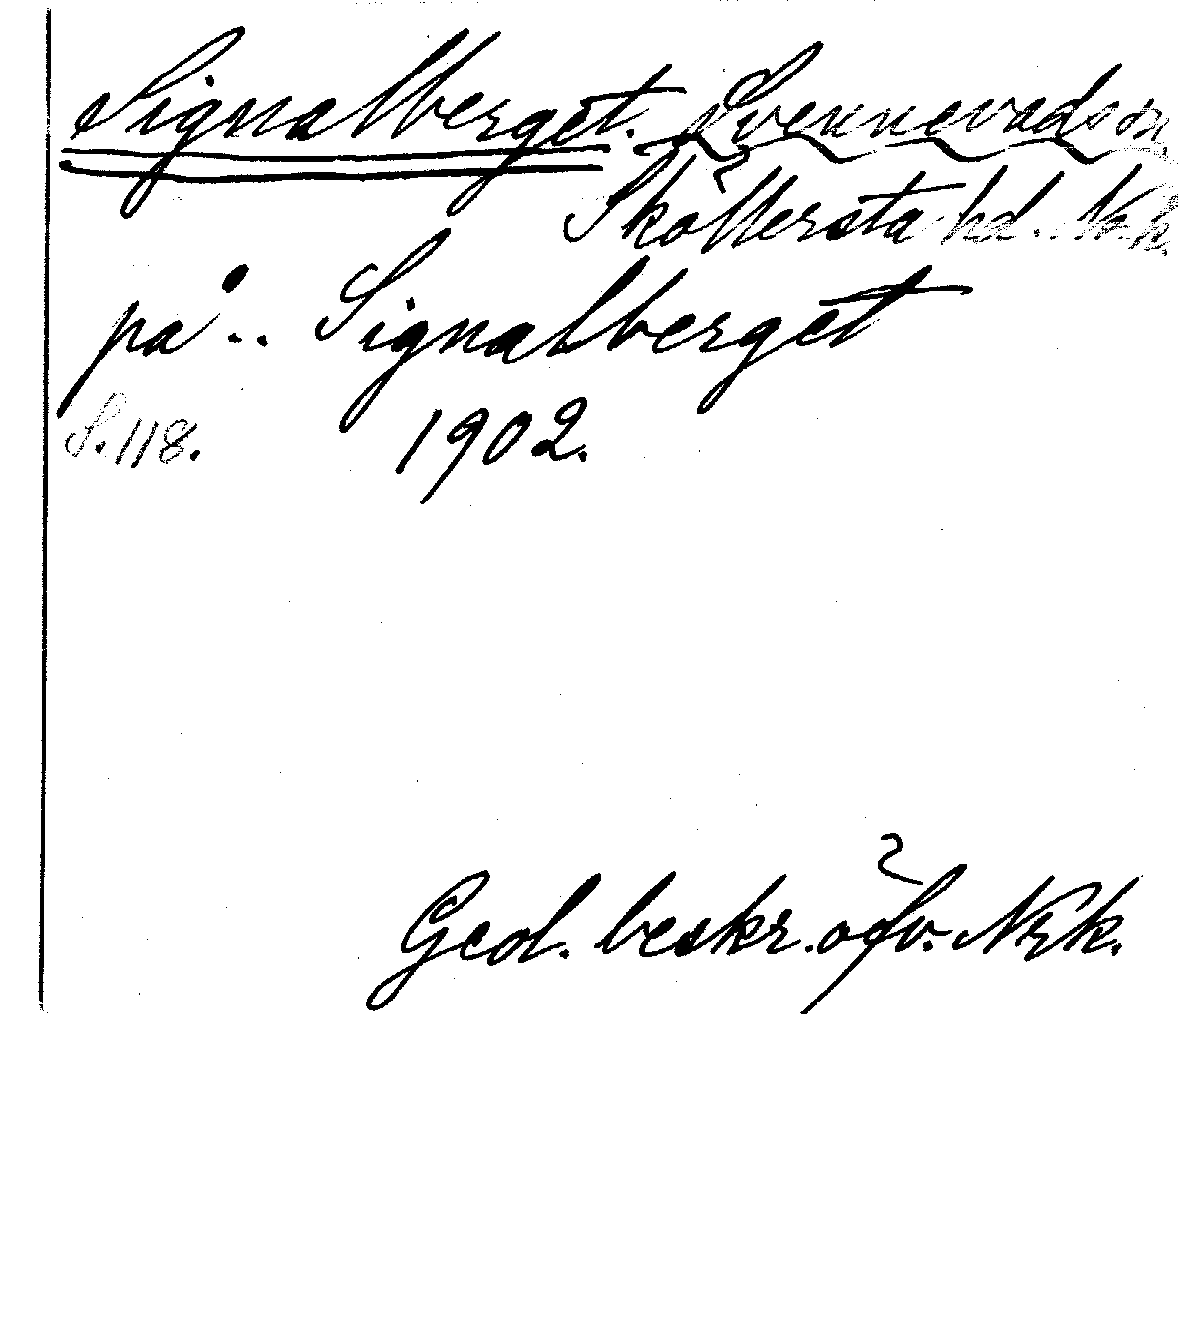 Signalberget. Svennevads sn,
Sköllersta hd. Nrk.
på .. Signalberget
S. 118. 1902.
Geol. beskr. öfv. Nrk.